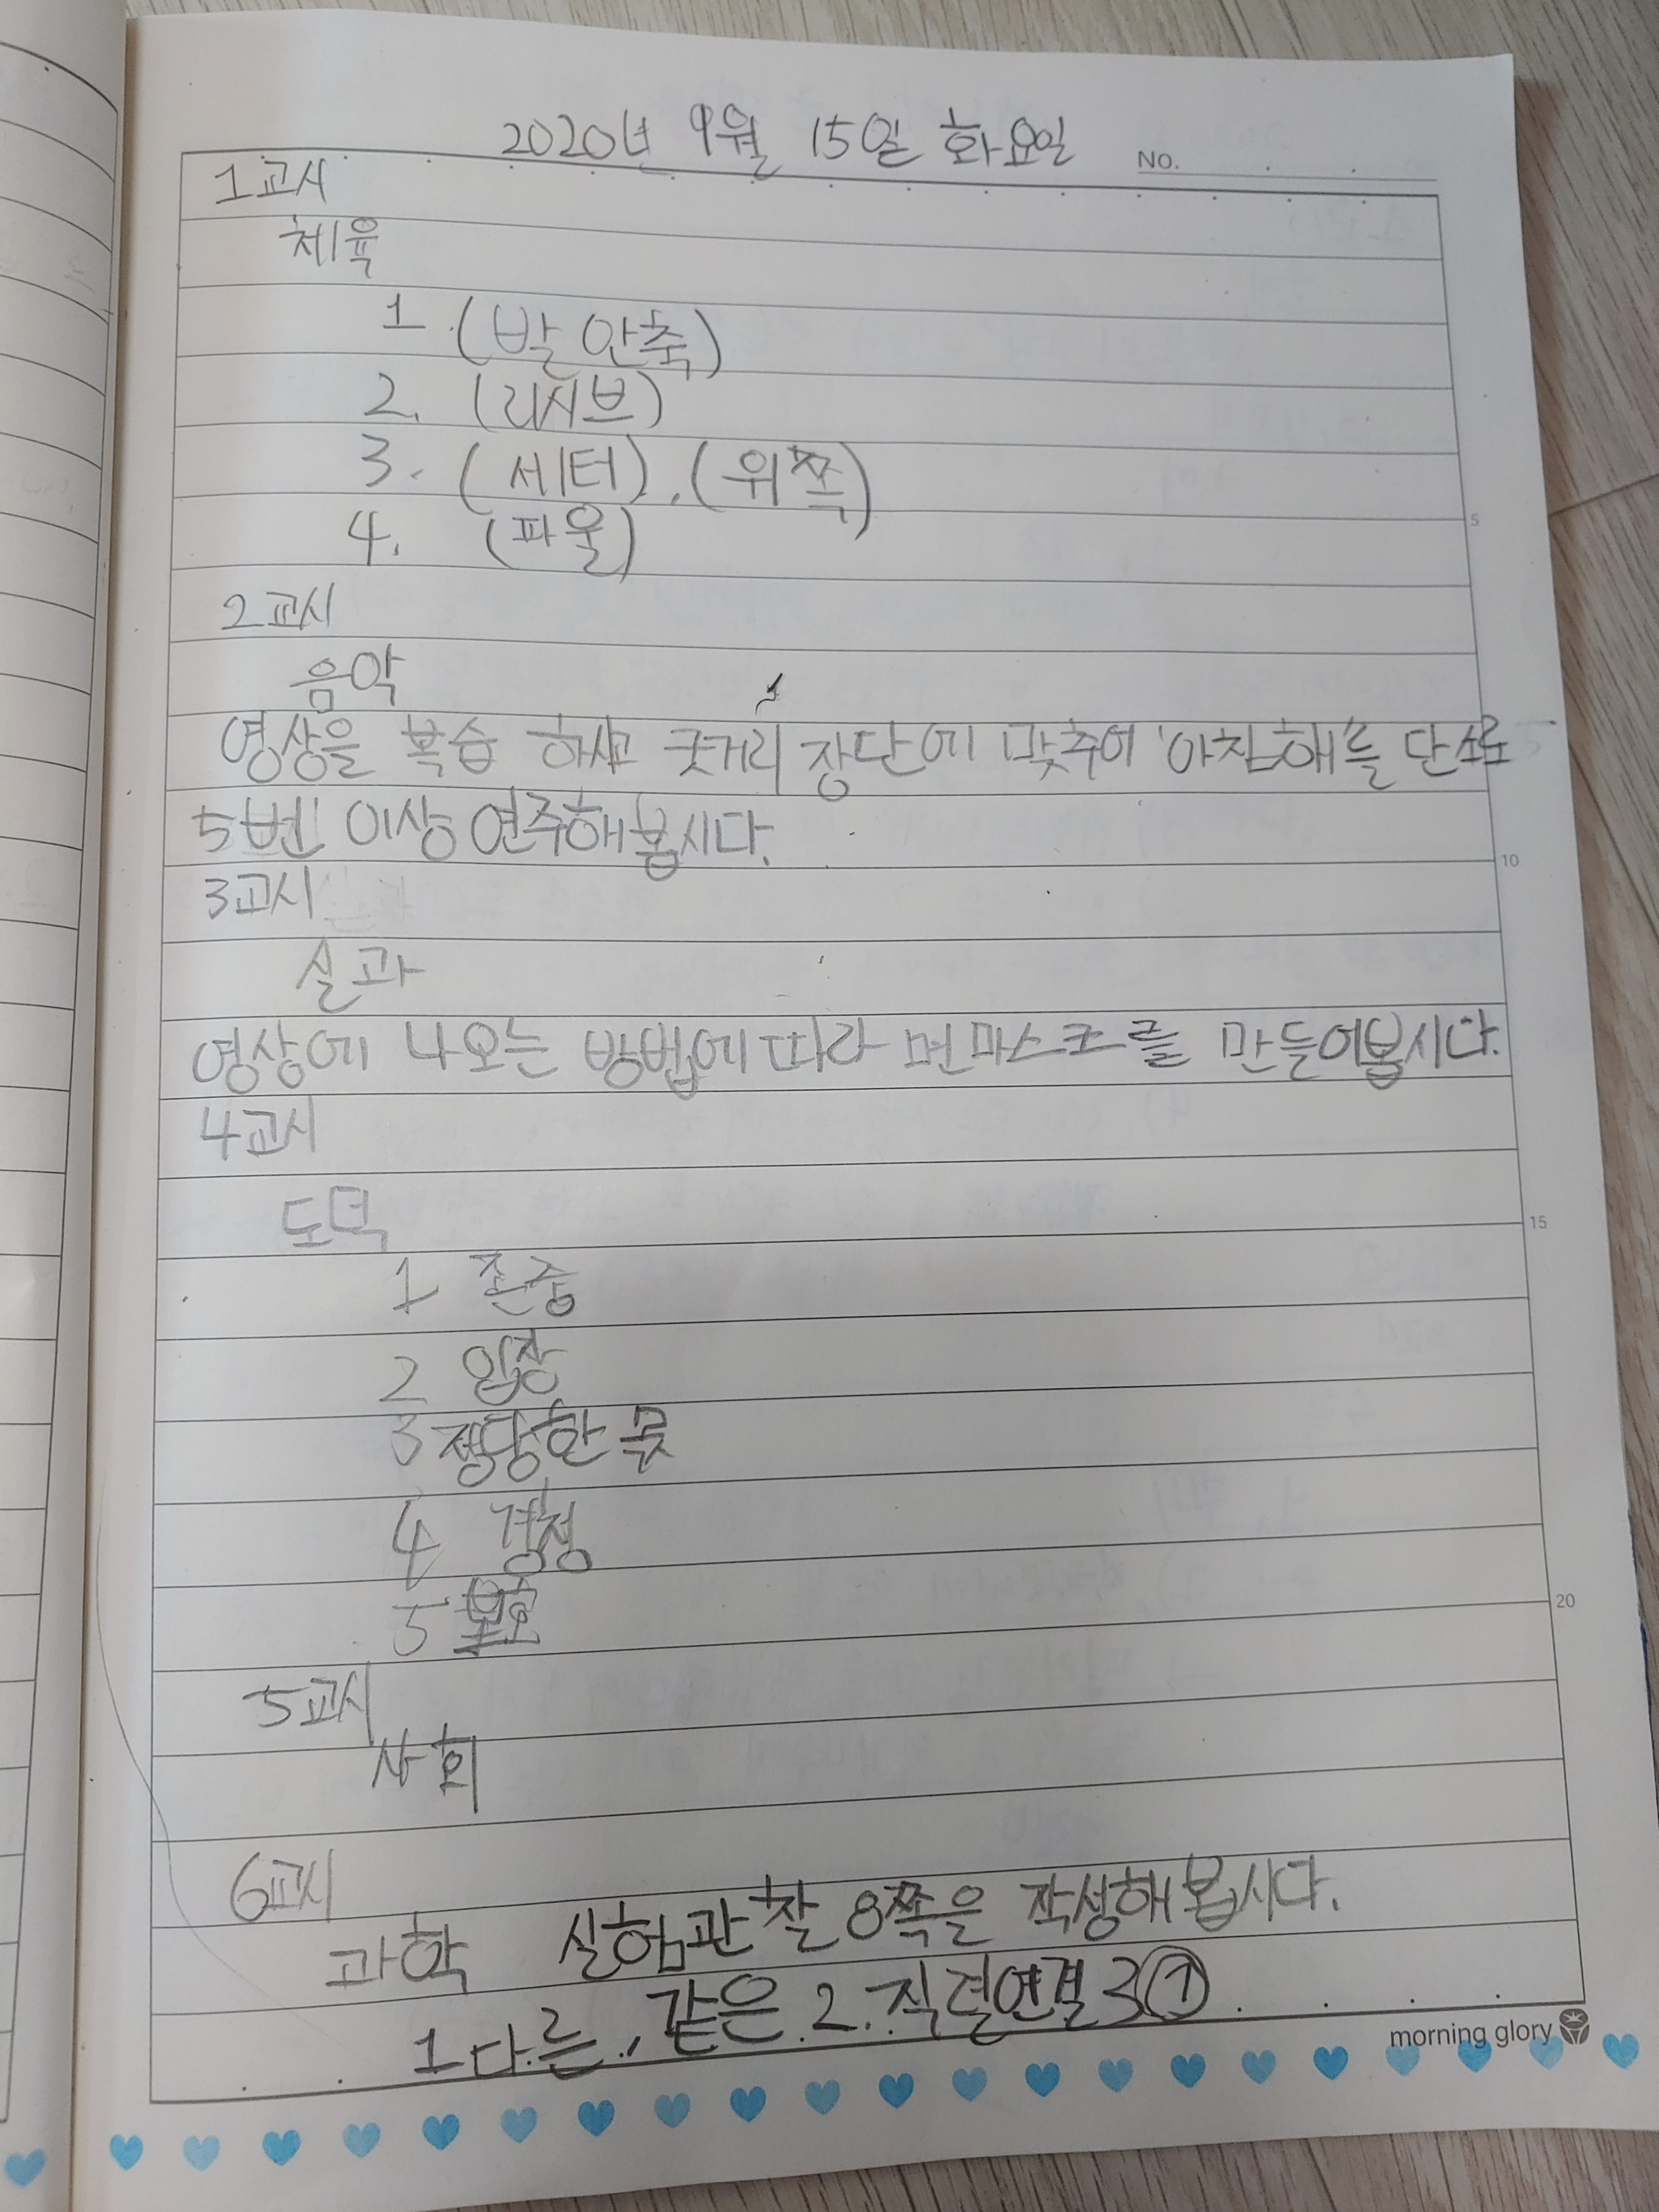 2020년 9월 15일 화요일
NO.
1교시
체육
1. (발 안축)
2. (리시브)
3. (세터), (위쪽)
4. (파울)
5
2교시
음악
영상을 복습 하시고 굿거리 장단에 맞추어 '아침해'를 단소로
5번 이상 연주해봅시다.
10
3교시
실과
영상에 나오는 방법에 따라 면마스크를 만들어봅시다.
4교시
도덕
15
1 존중
2 입장
3 정당한 몫
4 경청
5 보호
20
5교시
사회
6교시
과학 실험관찰 8쪽을 작성해봅시다.
1 다른, 같은 2. 직렬연결 3①
morning glory